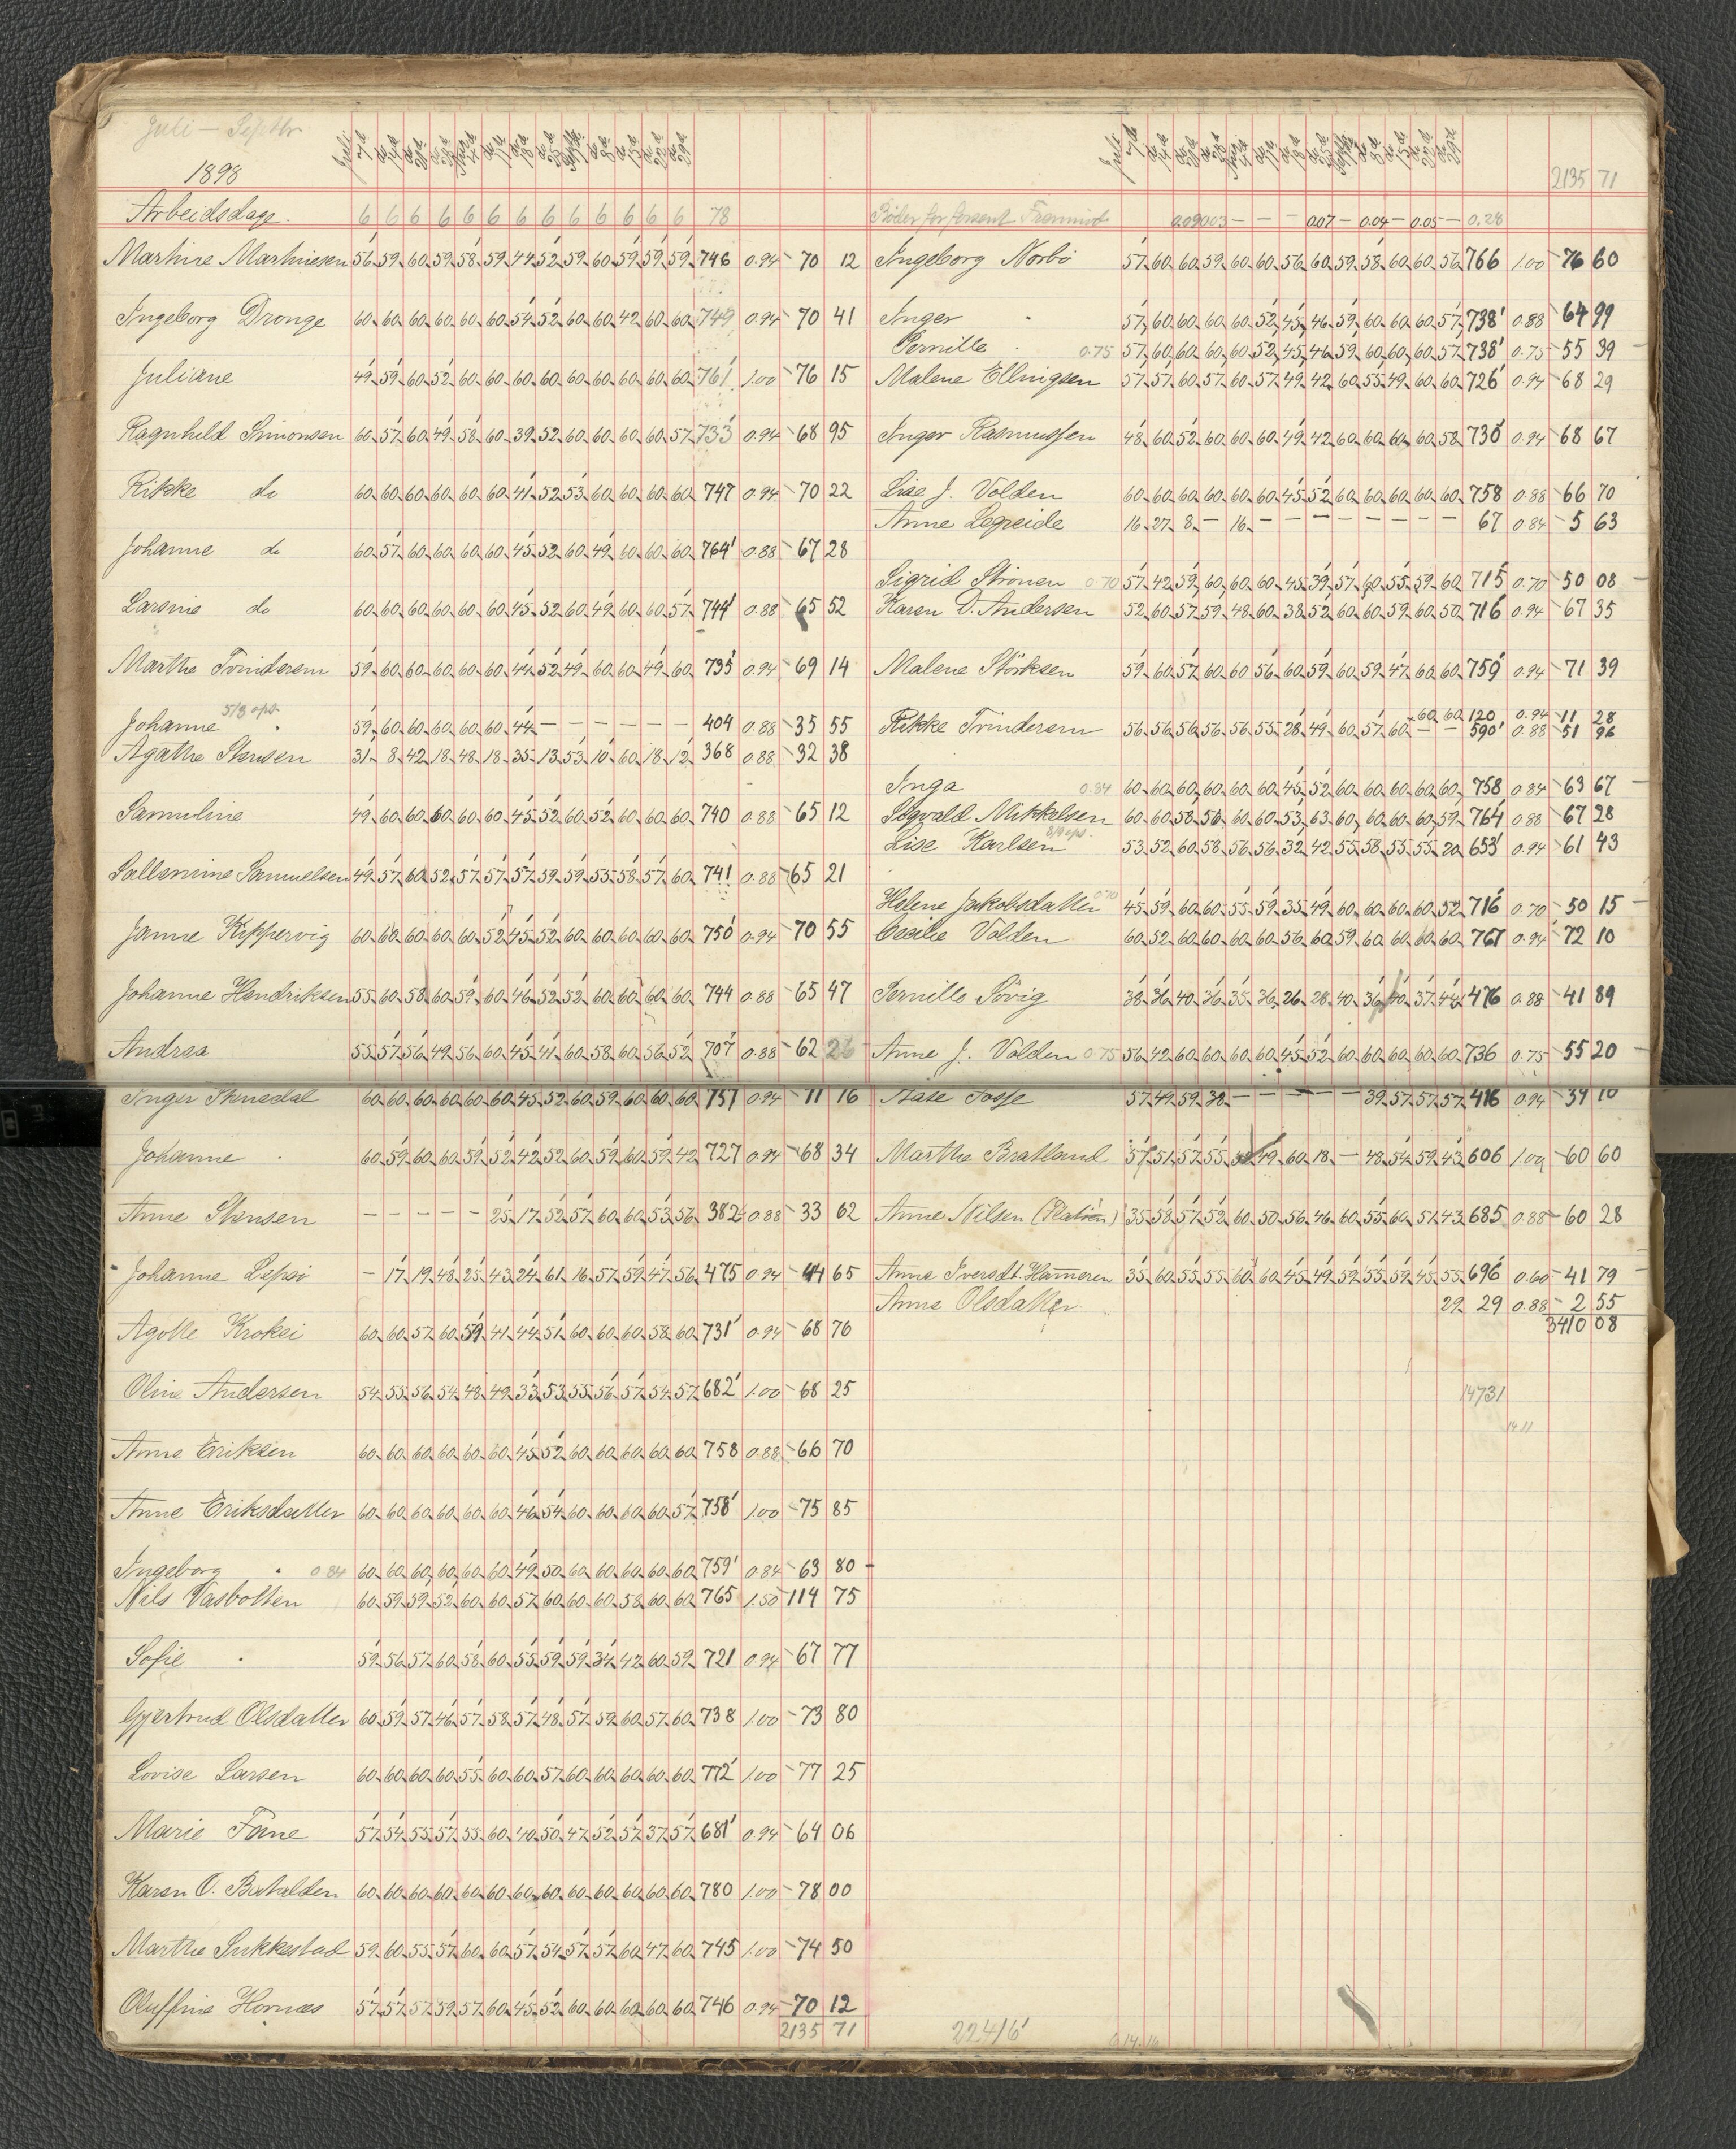 Juli — Septbr
1898
2135 71
Arbeidsdage. 6 6 6 6 6 6 6 6 6 6 6 6 6 78
0.07 — 0.04 — 0.05 — 0.28
Martine Martinesen 56 59 60 59 58 59 44 52 59 60 59 59 59 746 0.94 70 12
Ingeborg Norbö 57 60 60 59 60 60 56 60 59 58 60 60 56 766 1.00 76 60
Ingeborg Dronge 60 60 60 60 60 60 54 52 60 60 42 60 60 749 0.94 70 41
Inger 57 60 60 60 60 52 45 46 59 60 60 60 57 738 0.88 64 99
Pernille 0.75 57 60 60 60 60 52 45 46 59 60 60 60 57 738 0.75 55 39
Juliane 49 59 60 52 60 60 60 60 60 60 60 60 60 761 1.00 76 15
Malene Ellingsen 57 57 60 57 60 57 49 42 60 55 49 60 60 726 0.94 68 29
Ragnhild Simonsen 60 57 60 49 58 60 39 52 60 60 60 60 57 733 0.94 68 95
Inger Rasmussen 48 60 52 60 60 60 49 42 60 60 60 60 58 730 0.94 68 67
Rikke do 60 60 60 60 60 60 41 52 53 60 60 60 60 747 0.94 70 22
Lise J. Volden 60 60 60 60 60 60 45 52 60 60 60 60 60 758 0.88 66 70
Anne Legreide 16 27 8 — 16 — — — — — — — — 67 0.84 5 63
Johanne do 60 57 60 60 60 60 45 52 60 49 60 60 60 764 0.88 67 28
Sigrid Strönen 0.70 57 42 59 60 60 60 45 39 57 60 55 59 60 715 0.70 50 08
Larsine do 60 60 60 60 60 60 45 52 60 49 60 60 57 744 0.88 65 52
Karen D. Andersen 52 60 57 59 48 60 38 52 60 60 59 60 50 716 0.94 67 35
Marthe Tvinderem 59 60 60 60 60 60 44 52 49 60 60 49 60 735 0.94 69 14
Malene Störksen 59 60 57 60 60 56 60 59 60 59 47 60 60 759 0.94 71 39
Johanne 59 60 60 60 60 60 44 — — — — — — 404 0.88 35 55
60 60 120 0.94 11 28
Rikke Tvinderem 56 56 56 56 56 55 28 49 60 57 60 — — 590 0.88 51 96
Agathe Stensen 31 8 42 18 48 18 35 13 53 10 60 18 12 368 0.88 32 38
Inga 0.84 60 60 60 60 60 60 45 52 60 60 60 60 60 758 0.84 63 67
Samuline 49 60 60 60 60 60 45 52 60 52 60 60 60 740 0.88 65 12
Sigvald Mikkelsen 60 60 58 50 60 60 53 63 60 60 60 60 59 764 0.88 67 28
Lise Karlsen 53 52 60 58 56 56 32 42 55 58 55 55 20 653 0.94 61 43
Sallamine Samuelsen 49 57 60 52 57 57 57 59 59 55 58 57 60 741 0.88 65 21
Helene Jakobsdatter 0.70 45 59 60 60 55 59 35 49 60 60 60 60 52 716 0.70 50 15
Janne Kippervig 60 60 60 60 60 52 45 52 60 60 60 60 60 750 0.94 70 55
Cecilie Volden 60 52 60 60 60 60 56 60 59 60 60 60 60 767 0.94 72 10
Johanne Hendriksen 55 60 58 60 59 60 46 52 52 60 60 60 60 744 0.88 65 47
Pernille Sövig 38 36 40 36 35 36 26 28 40 36 40 37 44 476 0.88 41 89
Andrea 55 57 56 49 56 60 45 41 60 58 60 56 52 707 0.88 62 26
Anne J. Volden 0.75 56 42 60 60 60 60 45 52 60 60 60 60 60 736 0.75 55 20
Inger Stensdal 60 60 60 60 60 60 45 52 60 59 60 60 60 757 0.94 71 16
Aase Fosse 57 49 59 38 — — — — — 39 57 57 57 416 0.94 39 10
Johanne 60 59 60 60 59 52 42 52 60 59 60 59 42 727 0.94 68 34
Marthe Bratland 57 51 57 55 49 60 18 — 48 54 59 43 606 1.00 60 60
Anne Stensen — — — — — 25 17 52 57 60 60 53 56 382 0.88 33 62
Anne Nilsen 35 58 57 52 60 50 56 46 60 55 60 51 43 685 0.88 60 28
Johanne Lepsö — 17 19 48 25 43 24 61 16 57 59 47 56 475 0.94 44 65
Anne Iversdt. Hammeren 35 60 55 55 60 60 45 49 59 55 59 45 55 696 0.60 41 79
Anna Olsdatter 29 29 0.88 2 55
3410 08
Agotte Kroksei 60 60 57 60 59 41 44 51 60 60 60 58 60 731 0.94 68 76
Oline Andersen 54 55 56 54 48 49 33 53 55 56 57 54 57 682 1.00 68 25
14731
14.11
Anne Eriksen 60 60 60 60 60 60 45 52 60 60 60 60 60 758 0.88 66 70
Anne Eriksdatter 60 60 60 60 60 60 46 54 60 60 60 60 57 758 1.00 75 85
Ingeborg 0.84 60 60 60 60 60 60 49 50 60 60 60 60 60 759 0.84 63 80
Nils Vasbotten 60 59 59 52 60 60 57 60 60 60 58 60 60 765 1.50 114 75
Sofie 59 56 57 60 58 60 55 59 59 34 42 60 59 721 0.94 67 77
Gjertrud Olsdatter 60 59 57 46 57 58 57 48 57 59 60 57 60 738 1.00 73 80
Lovise Larsen 60 60 60 60 55 60 60 57 60 60 60 60 60 772 1.00 77 25
Marie Fane 57 54 55 57 55 60 40 50 47 52 57 37 57 681 0.94 64 06
Karen O. Birhalden 60 60 60 60 60 60 60 60 60 60 60 60 60 780 1.00 78 00
Marthe Sukkestad 59 60 55 57 60 60 57 54 57 57 60 47 60 745 1.00 74 50
Oluffine Hornæs 57 57 57 59 57 60 45 52 60 60 60 60 60 746 0.94 70 12
2135 71
22416